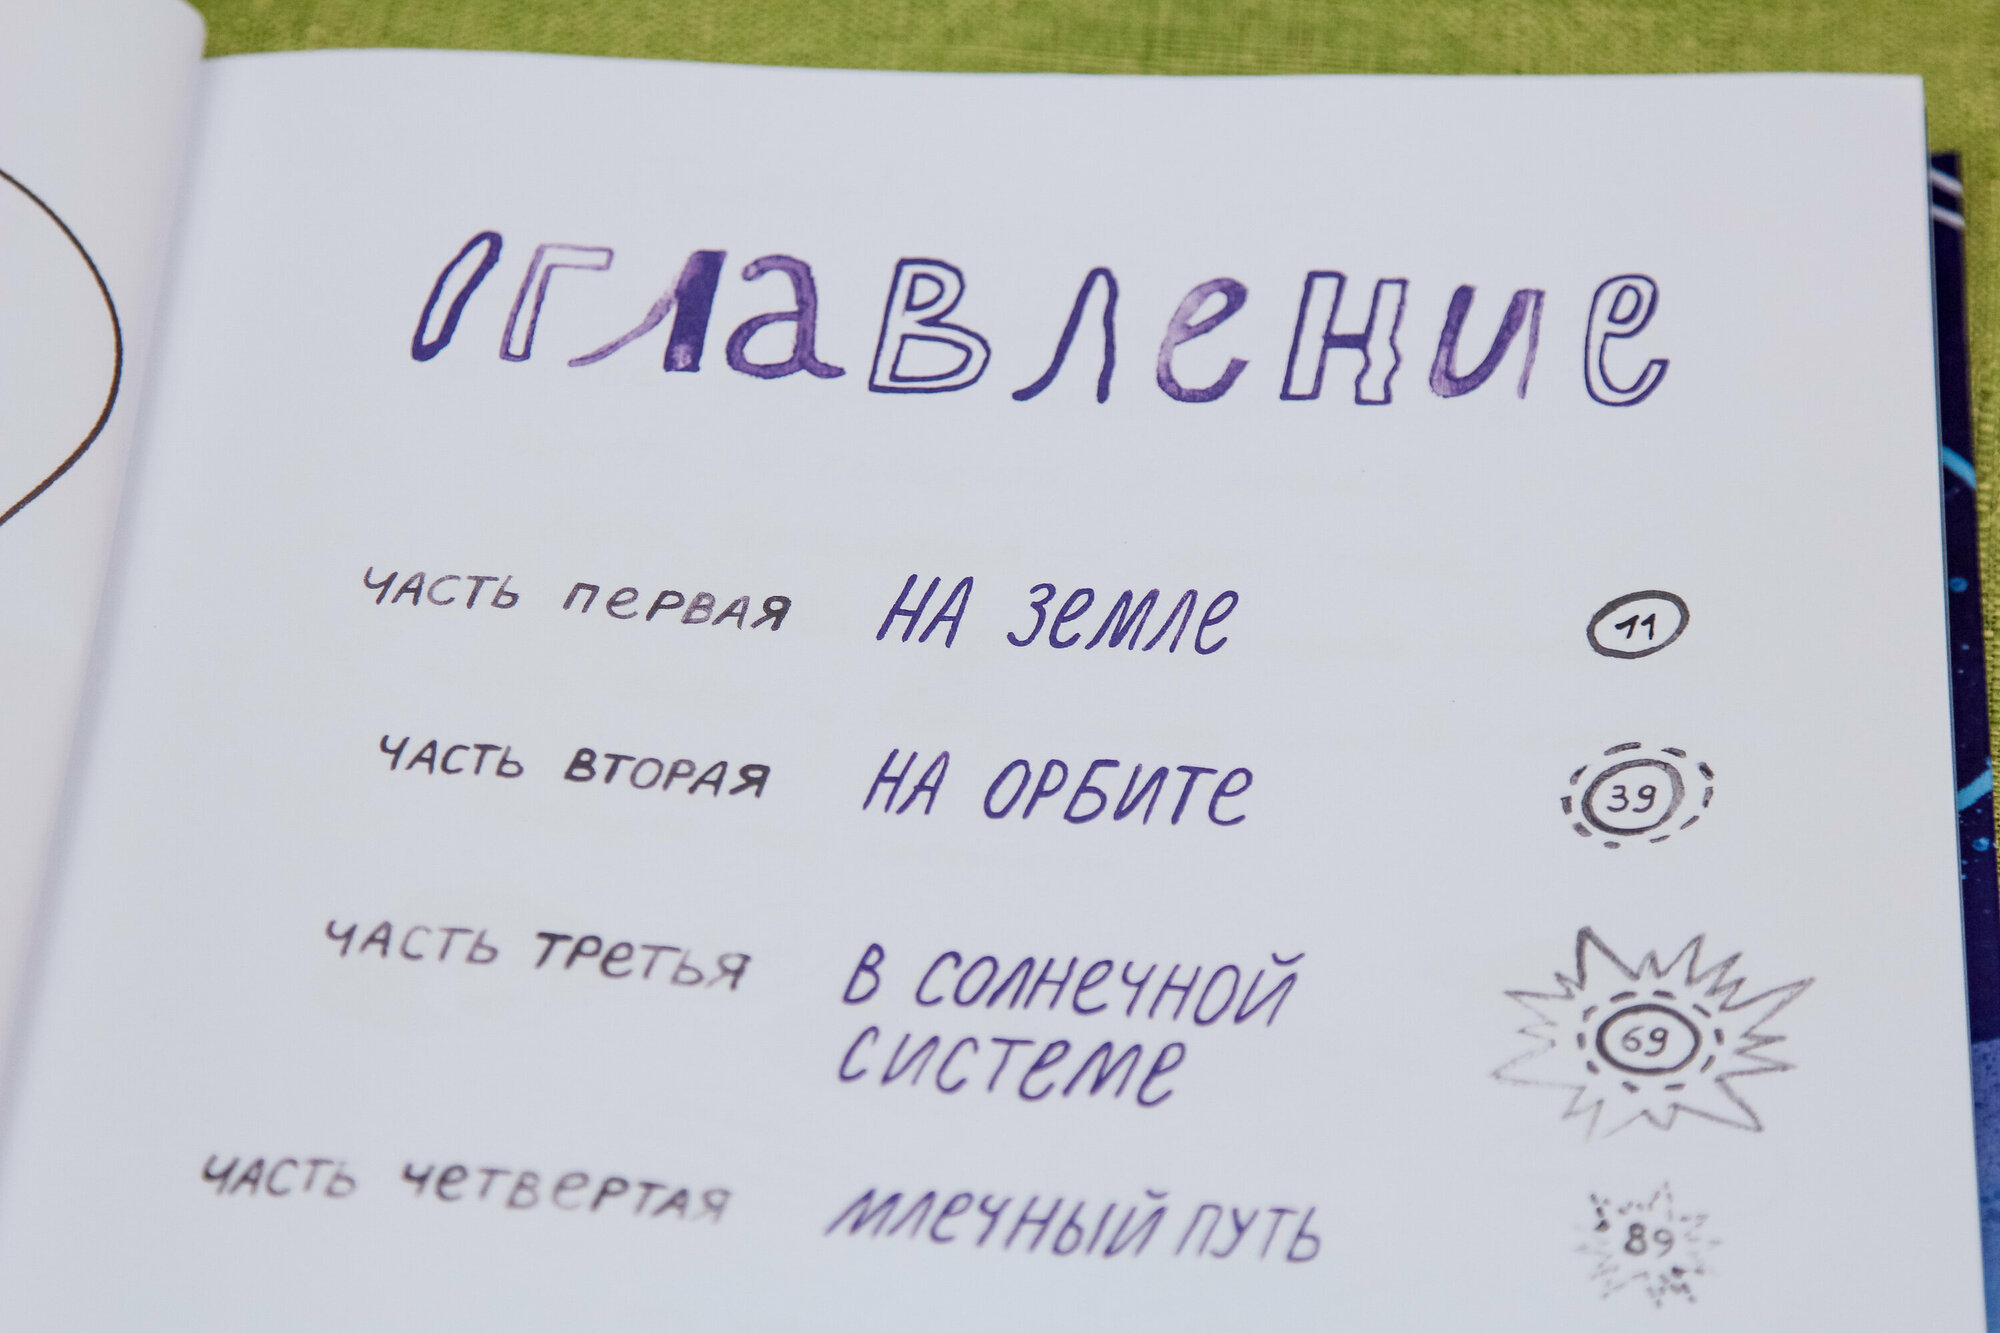 Оглавление
часть первая на земле 11
часть вторая на орбите 39
часть третья в солнечной 69
системе
часть четвертая млечный путь 89